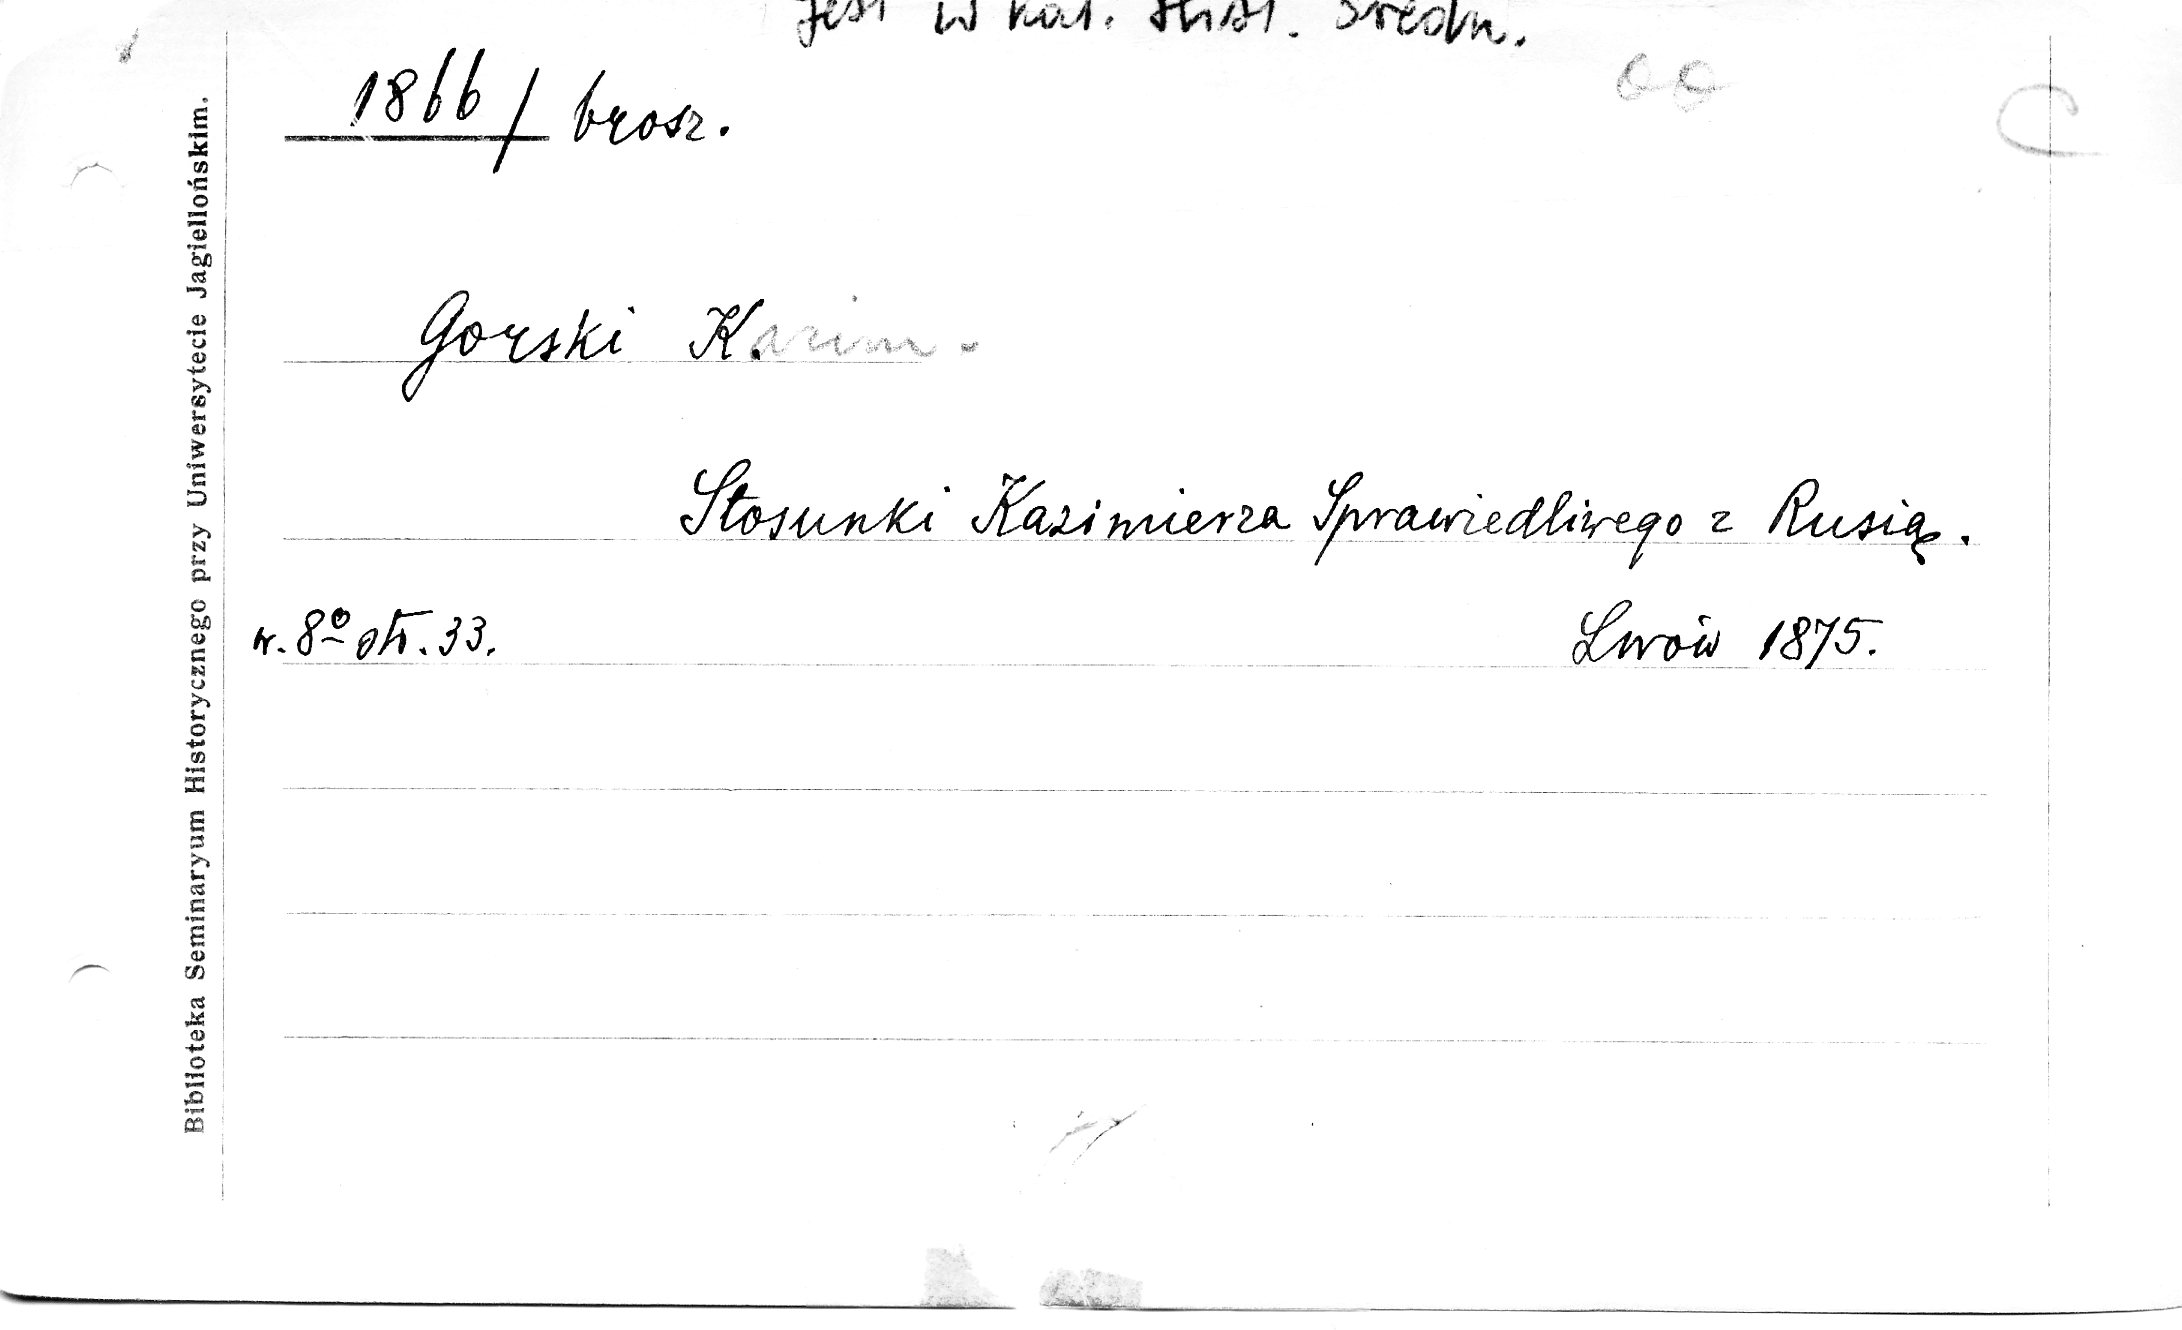 Jest w kat. Hist. Średn.
1866/ brosz.
Gorski K.azim.
Stosunki Kazimierza Sprawiedliwego z Rusią.
w. 8º str. 33. Lwów 1875.
Biblioteka Seminaryum Historycznego przy Uniwersytecie Jagiellońskim.